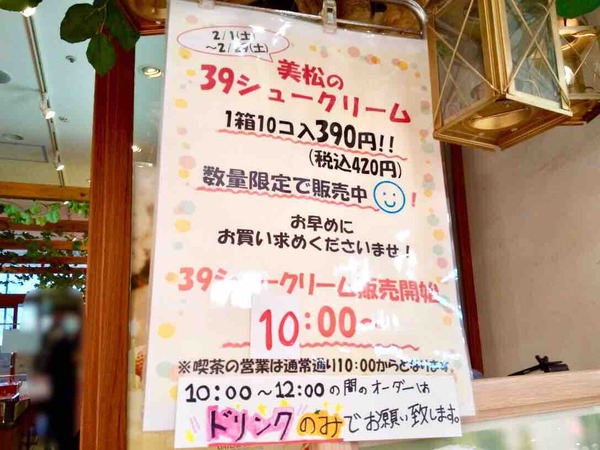 2/1(土)
～2/29(土)
美松の
39シュークリーム
1箱10コ入390円!!
(税込420円)
数量限定で販売中!
お早めに
お買い求めくださいませ!
39シュークリーム販売開始
10:00～
※喫茶の営業は通常通り10:00からとなります。
10:00～12:00の間のオーダーは
ドリンクのみでお願い致します。